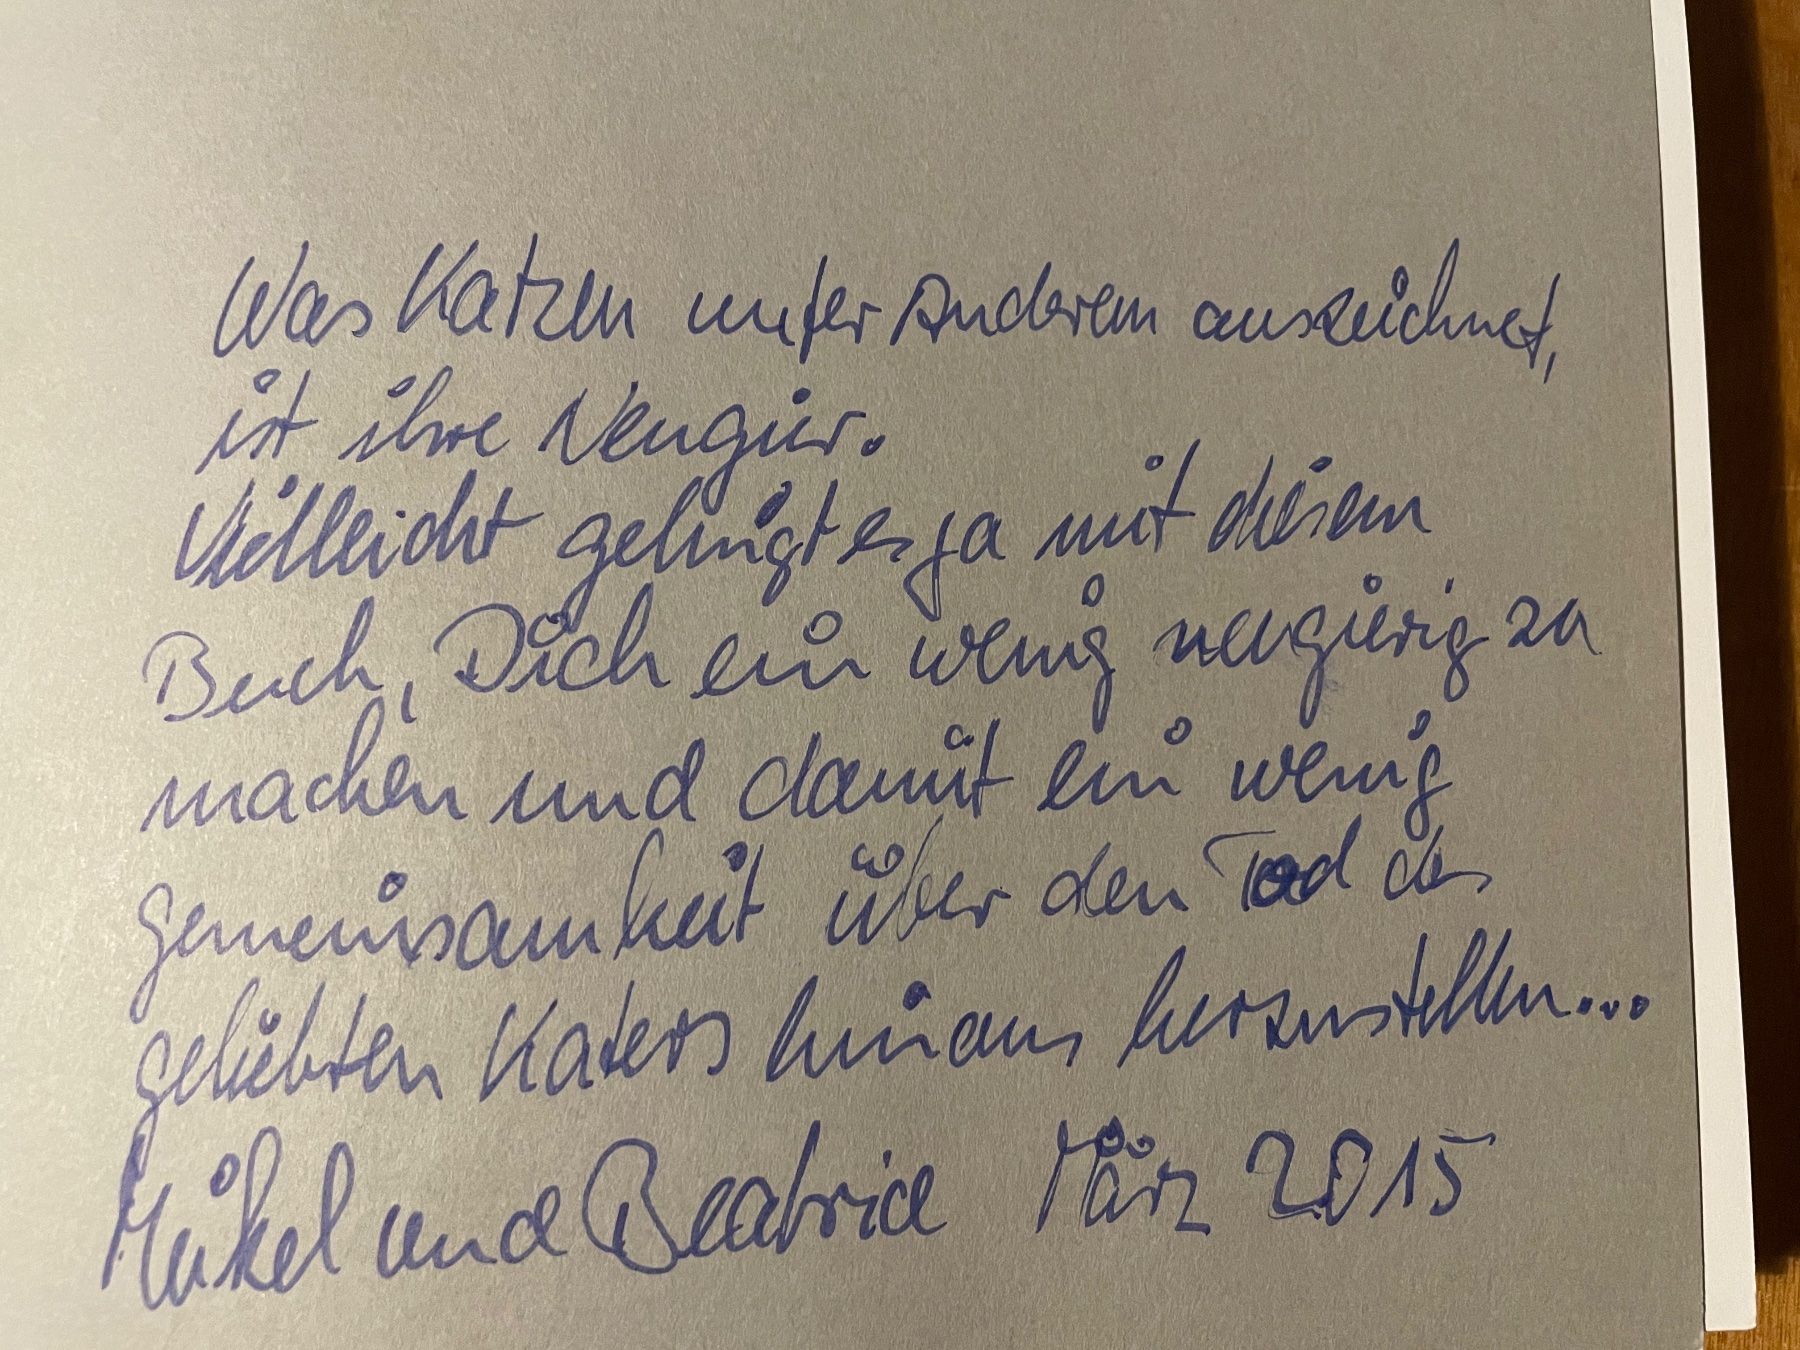 Was Katzen unter Anderem auszeichnet,
ist ihre Neugier.
Vielleicht gelingt es ja mit diesem
Buch, Dich ein wenig neugierig zu
machen und damit ein wenig
gemeinsamkeit über den Tod des
geliebten Katers hinaus herzustellen...
und Beatrice März 2015